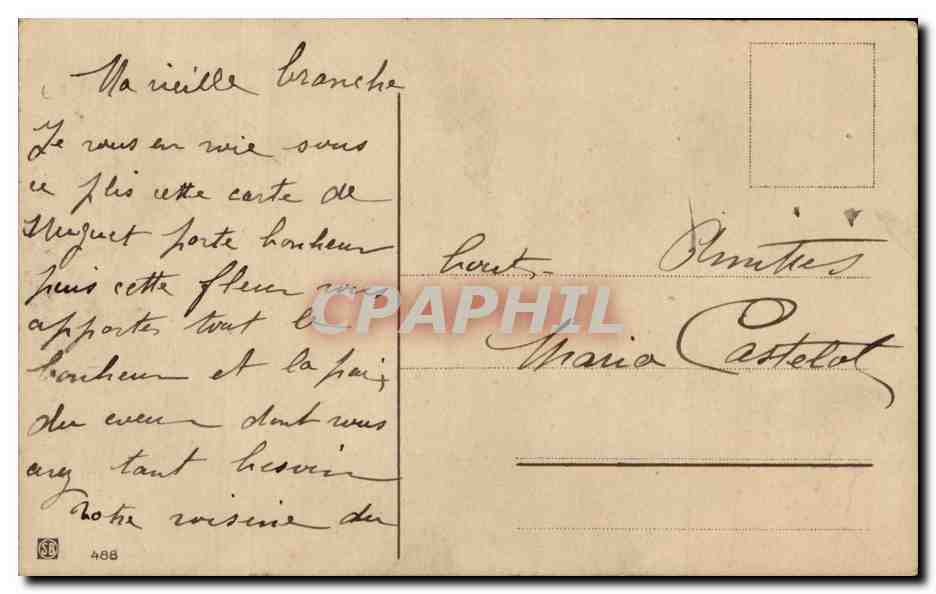 Ma vieille branche
Je vous en voie sous
ce plis cette carte de
Muguet porte bonheur
puis cette fleur vous
apporter tout le
bonheur et la paix
du coeur dont vous
avez tant besoin
Votre voisine du
bout
Maria Castelot
CPAPHIL
SB 488